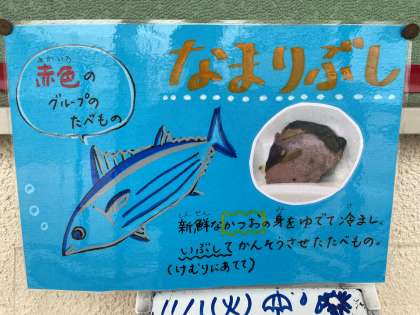 赤色の
グループの
たべもの
なまりぶし
新鮮なかつおの身をゆでて冷まし。
いぶしてかんそうさせたたべもの。
(けむりにあてて)
11/1(火)